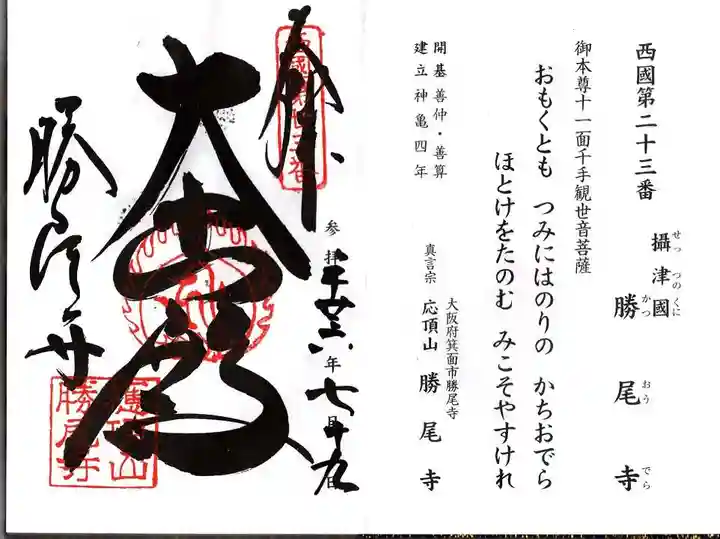 西國第二十三番
攝津國
せっつのくに
勝尾寺
かつおうでら
御本尊十一面千手観世音菩薩
おもくとも つみにはのりの かちおでら
ほとけをたのむ みこそやすけれ
開基 善仲・善算
建立 神亀四年
大阪府箕面市勝尾寺
真言宗 応頂山 勝尾寺
奉
参拝 年七月十九日
大悲殿
勝尾寺
応頂山
勝尾寺